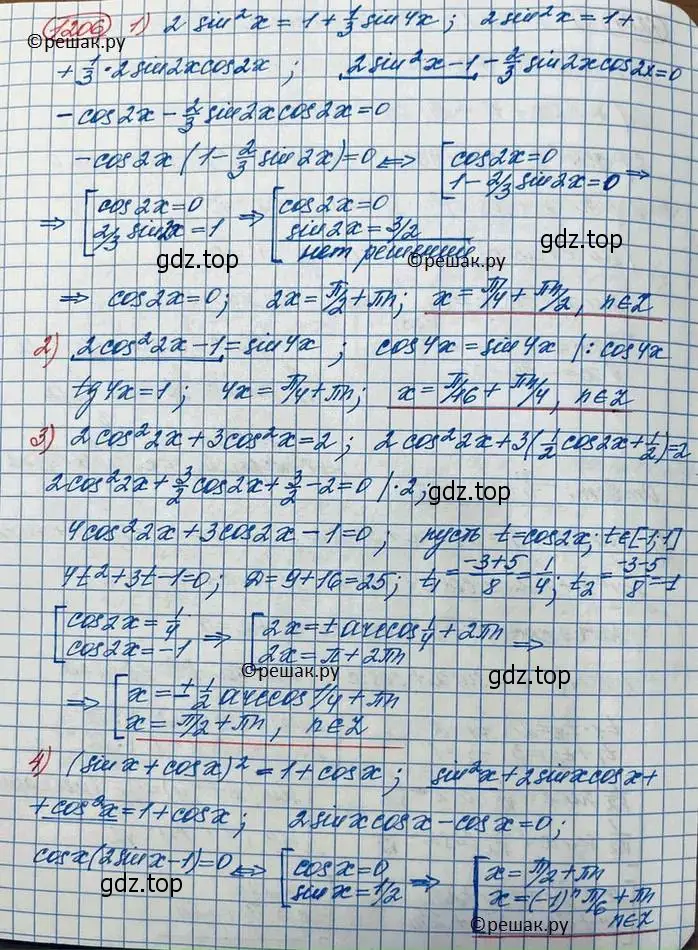 1206 1) 2 sin²x = 1 + 1/3 sin4x; 2sin²x = 1 +
©решак.ру
+ 1/3 · 2sin2xcos2x ; 2sin²x-1 - 2/3 sin2xcos2x=0
-cos2x - 2/3 sin2xcos2x=0
-cos2x (1 - 2/3 sin2x)=0 ⇔ [cos2x=0
1 - 2/3 sin2x=0 ⇒
⇒ [cos2x=0 ⇒ [cos2x=0
2/3 sin2x=1 sin2x=3/2
gdz.top нет решений ©решак.ру gdz.top
⇒ cos2x=0; 2x=π/2+πn; x=π/4+πn/2, n∈Z
2) 2cos²2x-1=sin4x ; cos4x=sin4x |:cos4x
tg4x=1 ; 4x=π/4+πn; x=π/16+πn/4, n∈Z
3) 2cos²2x+3cos²x=2; 2cos²2x+3(1/2 cos2x+1/2)=2
2cos²2x+3/2 cos2x+3/2-2=0 |·2;
©решак.ру gdz.top
4cos²2x+3cos2x-1=0; пусть t=cos2x; t∈[-1;1]
4t²+3t-1=0; D=9+16=25; t₁=(-3+5)/8=1/4; t₂=(-3-5)/8=-1
[cos2x=1/4 ⇒ [2x=±arccos 1/4+2πn ⇒
cos2x=-1 2x=π+2πn
©решак.ру gdz.top
⇒ [x=±1/2 arccos 1/4+πn
x=π/2+πn, n∈Z
4) (sinx+cosx)²=1+cosx; sin²x+2sinxcosx+
+cos²x=1+cosx; 2sinxcosx-cosx=0;
cosx(2sinx-1)=0 ⇔ [cosx=0 ⇒ [x=π/2+πn
gdz.top sinx=1/2 x=(-1)ⁿ π/6+πn
©решак.ру n∈Z